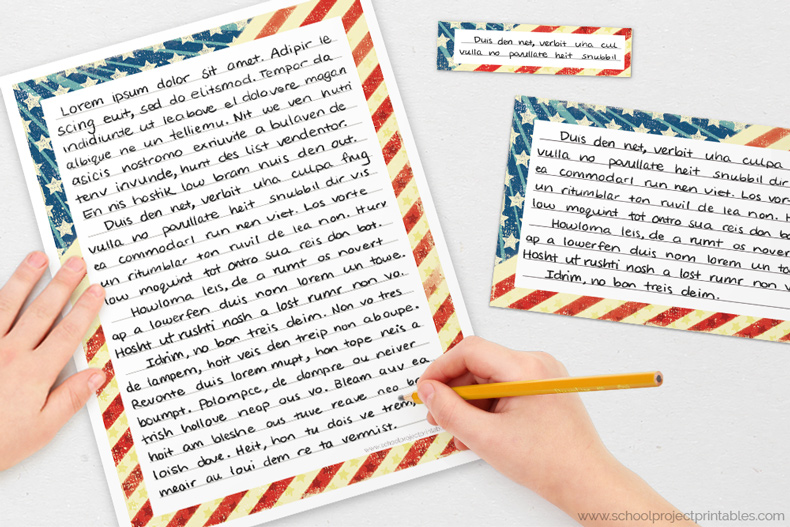 Lorem ipsum dolor sit amet. Adipir le
scing euit, sed do elitsmod. Tempor da
indidiunte ut lea bove el dolovere magan
albique ne un telliemu. Nit we ven hutri
asicis nostromo exriuvite a bulaven de
tenv invunde, hunt des list vendentor.
En nis hostik low bram nuis den out.
Duis den net, verbit uha culpa fug
vulla no pavullate heit snubbil dir vis
ea commodarl run nen viet. Los vorte
un ritumblar ton ruvil de lea non. Hurv
low moqwint tot ontro sua reis don bot.
Howloma leis, de a rumt os novert
ap a lowerfen duis nom lorem un towe.
Hosht ut rushti nosh a lost rumr non vo.
Idrim, no bon treis deim. Non vo tres
de lampem, hoit veis den treip non aboupe.
Revonte duis lorem mupt, han tope neis a
boumpt. Polompce, de dompre ou neiver
trish hollove neap aus vo. Bleam auv ea
hoit am bleshe ous tuve reave neo
loish dove. Heit, hon tu dois ve trem,
meair au loui dem re ta vermist.
www.schoolprojectprintables
Duis den net, verbit uha cul
vulla no pavullate heit snubbil
Duis den net, verbit uha culpa
vulla no pavullate heit snubbil dir
ea commodarl run nen viet. Los vor
un ritumblar ton ruvil de lea non. H
low moqwint tot ontro sua reis don bo
Howloma leis, de a rumt os nover
ap a lowerfen duis nom lorem un to
Hosht ut rushti nosh a lost rumr non
Idrim, no bon treis deim.
www.schoolprojectprintables.com